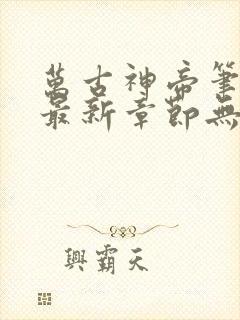 萬古神帝筆
最新章節無
興霸天